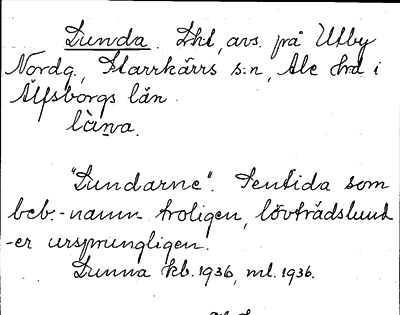 Lunda. Lht, avs. på Utby
Nordg., Starrkärrs s:n, Ale hd i
Älfsborgs län.
làṉa.
"Lundarne". Sentida som
beb.-namn troligen, lövträdslund
-er ursprungligen.
Lunna kb. 1936, ml. 1936.